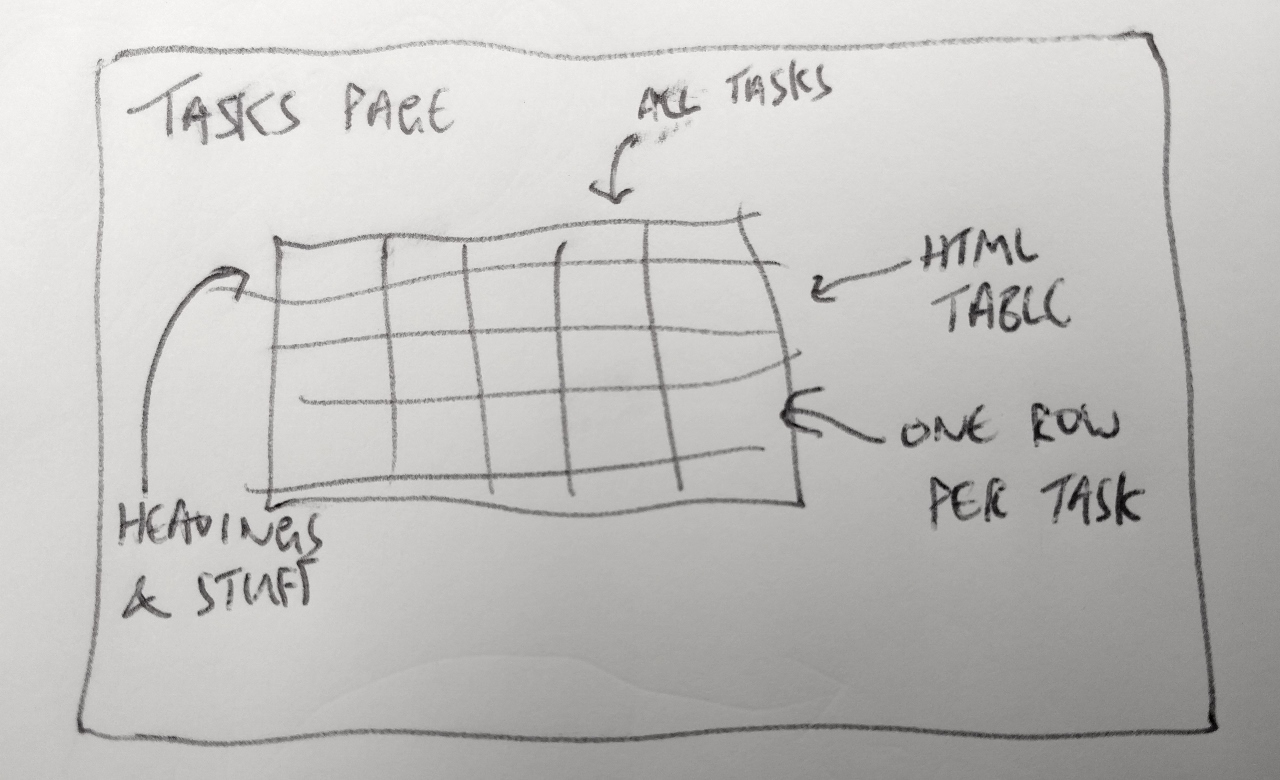 TASKS PAGE
ALL TASKS
HTML
TABLE
ONE ROW
PER TASK
HEADINGS
& STUFF